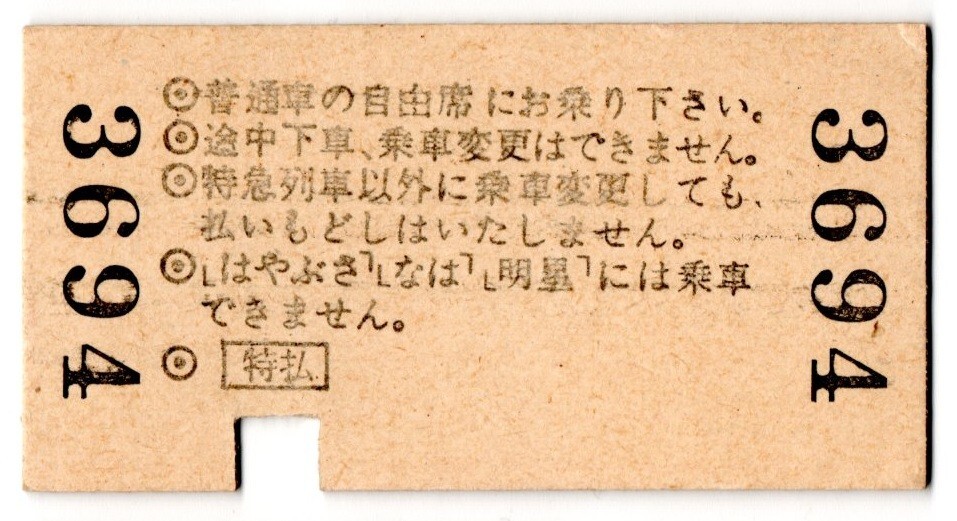 ◎普通車の自由席にお乗り下さい。
◎途中下車、乗車変更はできません。
◎特急列車以外に乗車変更しても、
払いもどしはいたしません。
◎「はやぶさ」「なは」「明星」には乗車
できません。
◎ 特払
3694
3694